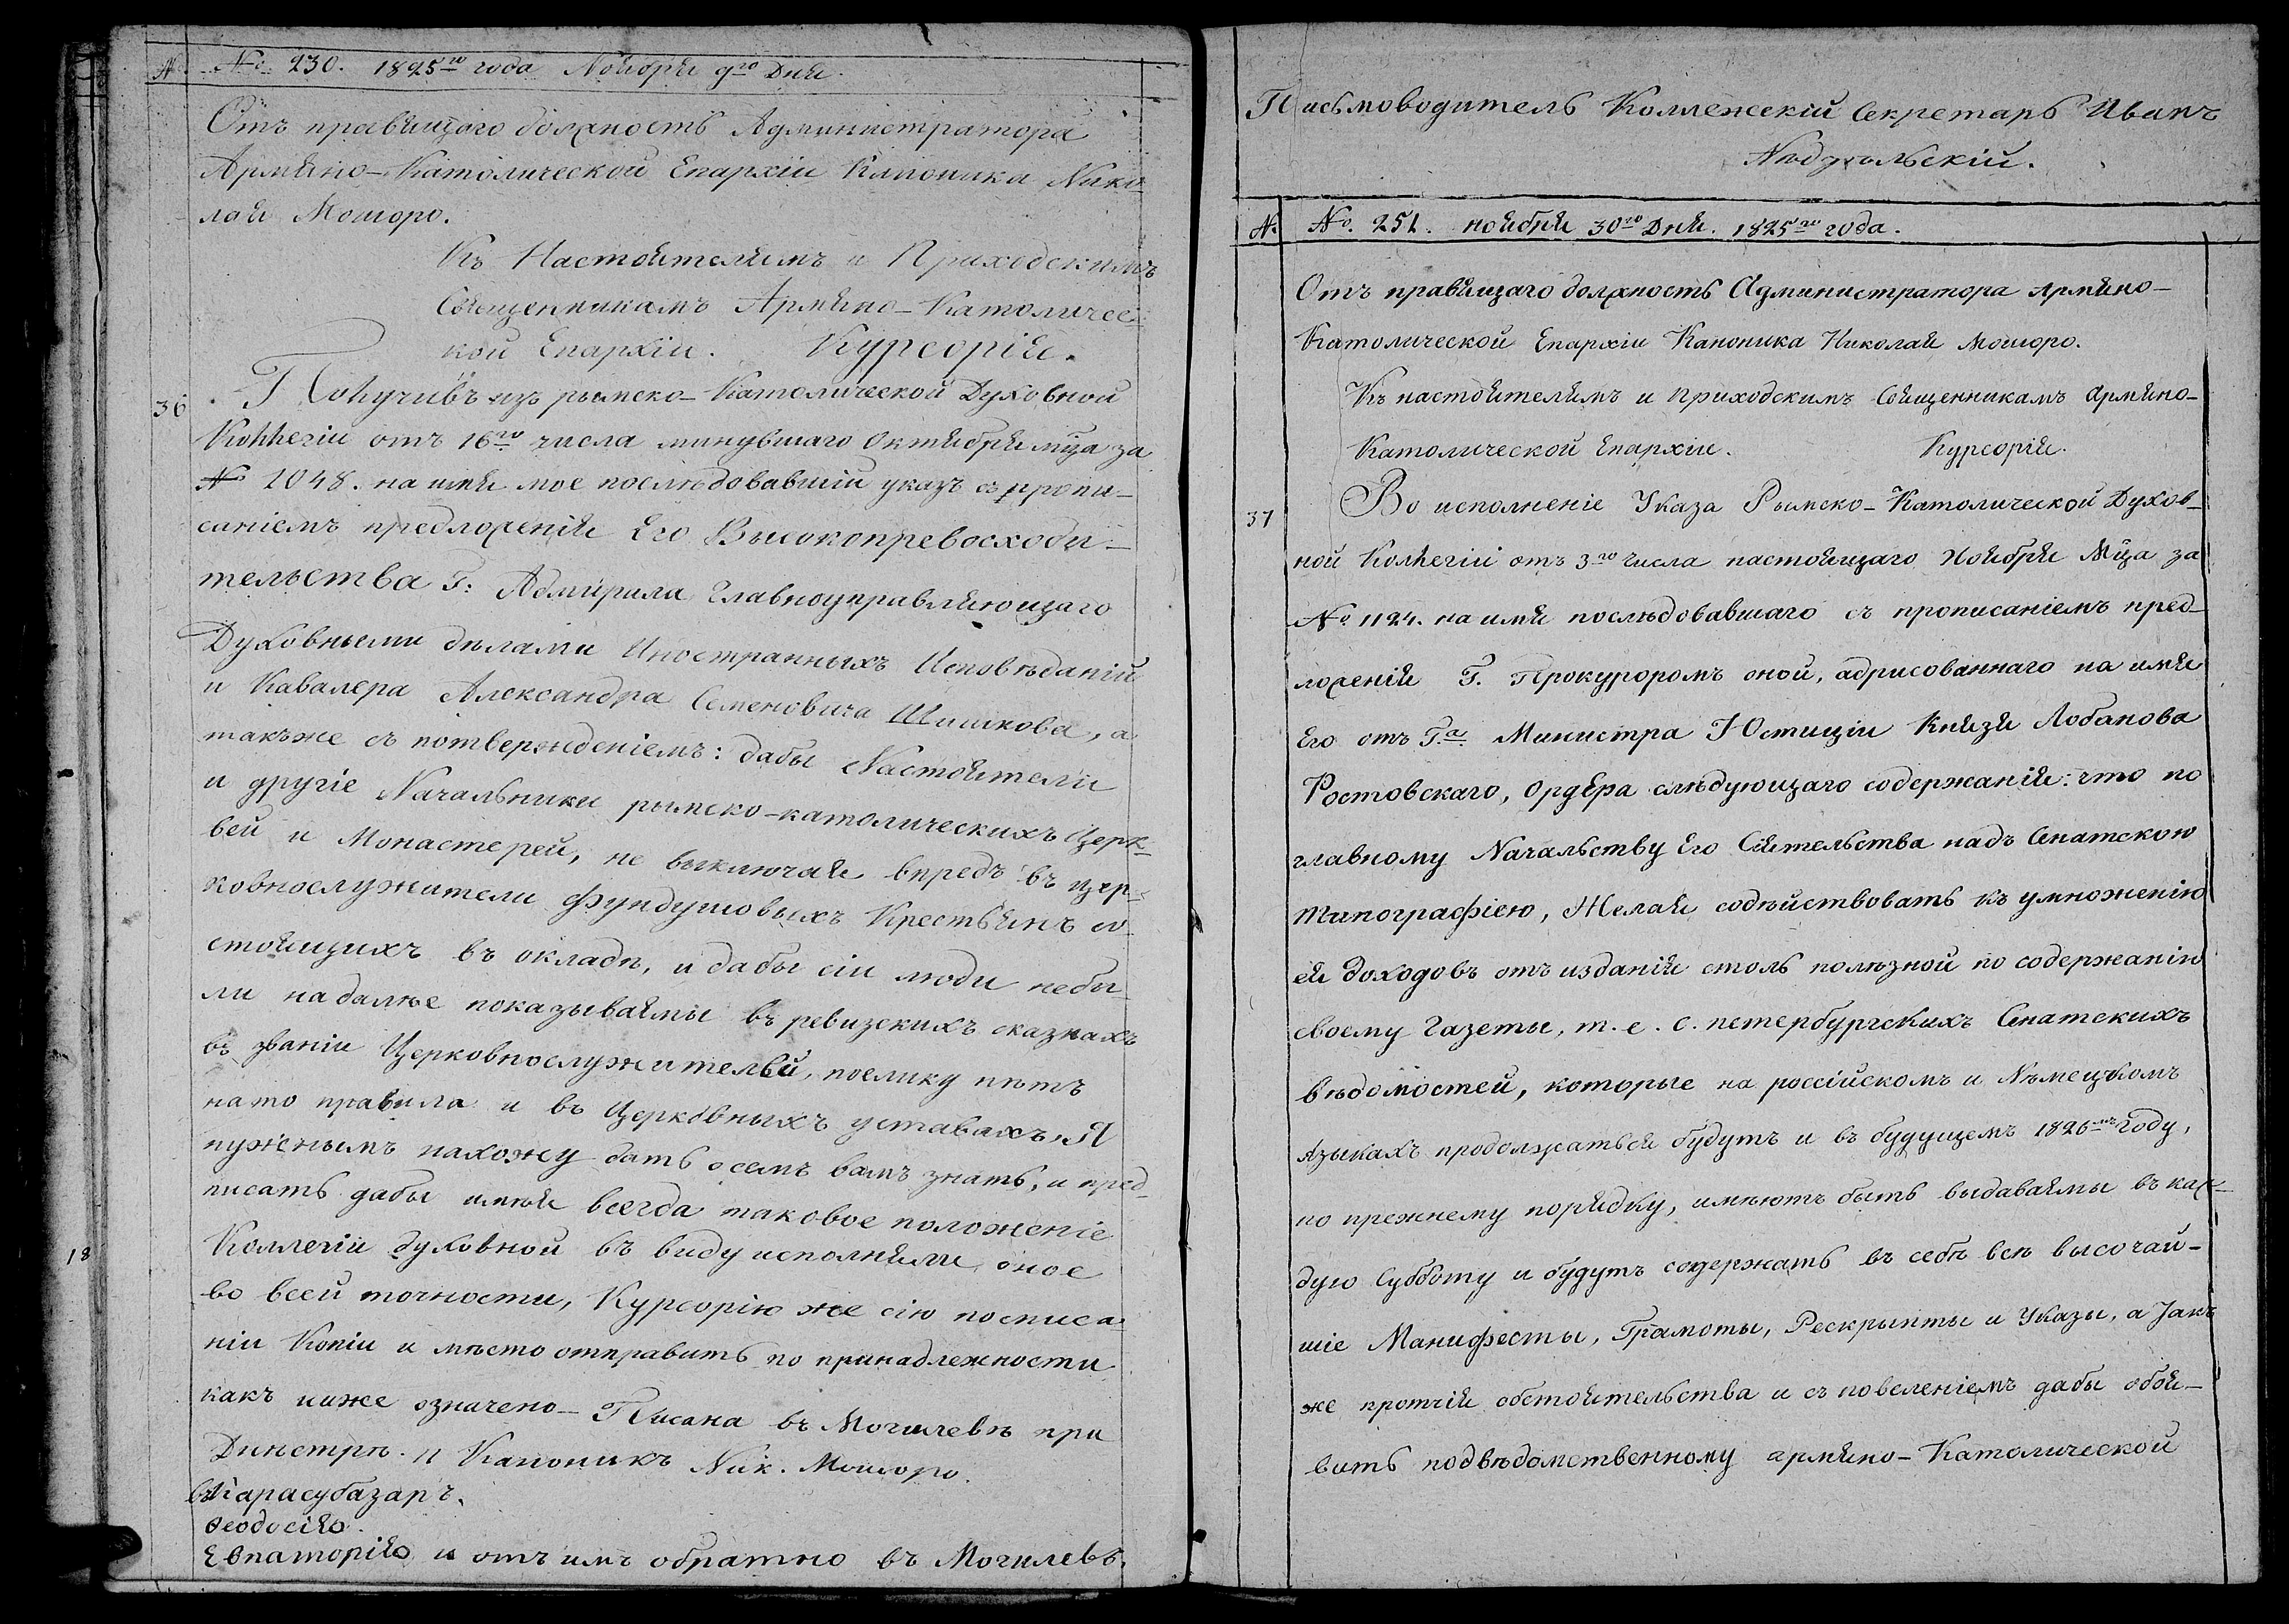 № № 230. 1825го года Ноября 9го Дня.
Отъ правящаго должность Администратора
Армяно-Католической Епархіи Каноника Нико-
лая Мошоро.
Къ Настоятелямъ и Приходскимъ
Священникамъ Армяно-Католичес-
кой Епархіи. Курсорія.
36 Получивъ изъ рымско-Католической Духовной
Коллегіи отъ 16го числа минувшаго Октября мца за
№ 1048. на имя мое последовавшій указъ съ пропи-
саніемъ предложенія Его Высокопревосходи-
тельства Г: Адмирала Главноуправляющаго
Духовными дѣлами Иностранныхъ Исповѣданій
и Кавалера Александра Семеновича Шишкова, а
такъже съ потвержденіемъ: дабы Настоятели
и другіе Начальники рымско-католическихъ Церк-
вей и Монастерей, не выключая впредъ въ цер-
ковнослужители фундушовыхъ Крестьянъ со-
стоящихъ въ окладѣ, и дабы сіи люди небы-
ли надалѣе показываямы въ ревизскихъ сказкахъ
въ званіи Церковнослужителей, поелику нѣтъ
на то правила и въ Церковныхъ уставахъ, Я
нужнымъ нахожу дать о семъ вамъ знать, и пред-
писать дабы имѣя всегда таковое положеніе
Коллегіи духовной въ виду исполняли оное
во всей точности, Курсорію же сію по списа-
ніи Копіи и мѣсто отправить по принадлежности
какъ ниже означено- Писана въ Могилевѣ при
Днестрѣ. п Каноникъ Ник. Мошоро.
въ Карасубазаръ.
Феодосію.
Евпаторію и отъ имъ обратно въ Могилевъ.
18
Письмоводитель Коллежскій Секретарь Иванъ
№ № 251. ноября 30го Дня. 1825го года.
Отъ правящаго должность Администратора Армяно-
Католической Епархіи Каноника Николая Мошоро.
Къ настоятелямъ и Приходскимъ Священникамъ Армяно-
Католической Епархіи. Курсорія.
37 Во исполненіе Указа Рымско-Католической Духов-
ной Коллегіи отъ 3го числа настоящаго Ноября Мца за
№ 1124. на имя послѣдовавшаго съ прописаніемъ пред-
ложенія Г. Прокуроромъ оной, адрисованнаго на имя
Его отъ Г.а Министра Юстиціи Князя Лобанова
Ростовскаго, Ордера слѣдующаго содержанія: что по
главному Начальству Его Сіятельства надъ Сенатскою
типографіею, Желая содѣйствовать къ умноженію
ея доходовъ отъ изданія столь полѣзной по содержанію
своему Газеты, т. е. С. петербургскихъ Сенатскихъ
вѣдомостей, которые на россійскомъ и Нѣмецкомъ
Языкахъ продолжаться будутъ и въ будущемъ 1826мъ году,
по прежнему порядку, имѣютъ быть выдаваямы въ каж-
дую Субботу и будутъ содержать въ себѣ всѣ высочай-
шіе Манифесты, Грамоты, Рескрыпты и Указы, а Такъ
же протчія обстоятельства и съ повеленіемъ дабы объя-
вить подвѣдомственному армяно-Католической